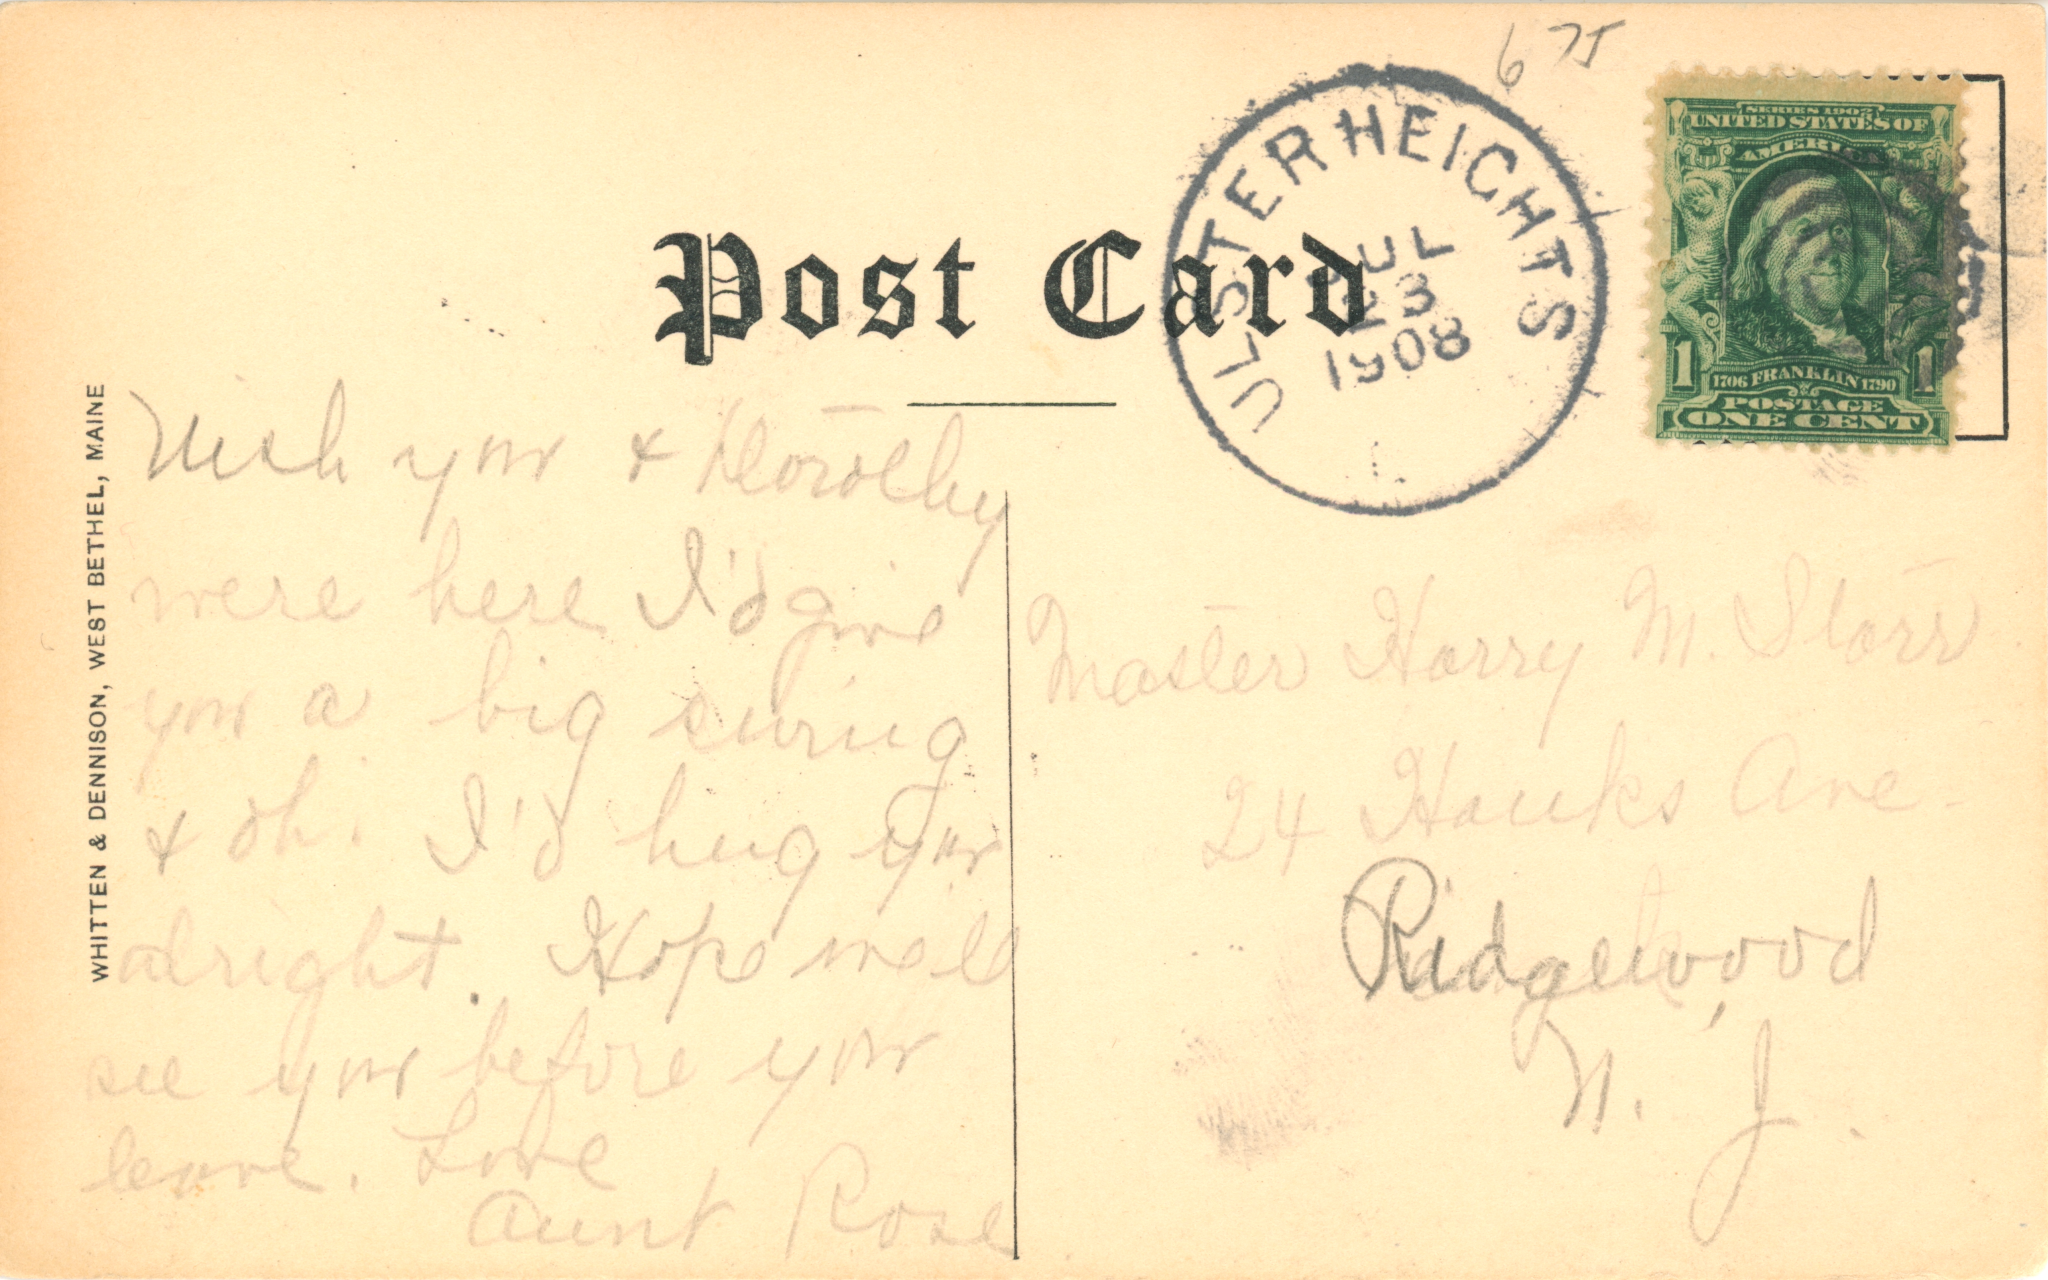 6 75
SERIES 1902
UNITED STATES OF
AMERICA
1 1
1706 FRANKLIN 1790
POSTAGE
ONE CENT
ULSTER HEIGHTS
JUL
23
1908
Post Card
WHITTEN & DENNISON, WEST BETHEL, MAINE
Wish you & Dorothy
were here I'd give
you a big swing
& oh. I'd hug you
alright. Hope we'll
see you before you
leave. Love
Aunt Rose
Master Harry M. Storr
24 Hauks Ave
Ridgewood,
N. J.